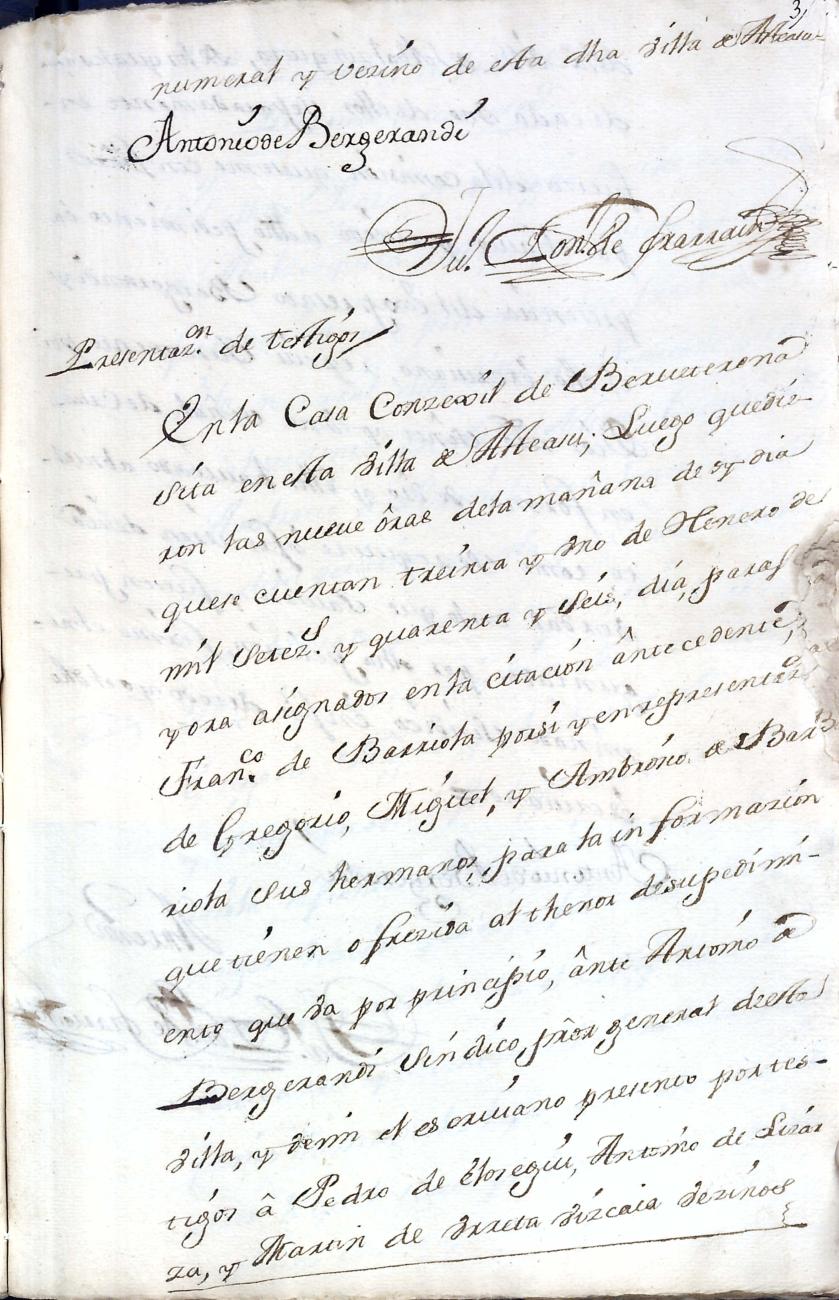 3
numeral y vezino de esta dha villa de Asteasu
Antonio de Bergerandi
Presentaz.on de testigos
En la Casa Conzexil de Berueterena
sita en esta villa de Asteasu; Luego que die-
ron las nueue ôras dela mañana de oy dia
que se cuentan treinta y vno de Henero de
mil Setez.s y quarenta y seis, dia, paraj
y ora asignados en la citacion ântecedente,
Fran.co de Barriola por si y en representaz.on
de Gregorio, Miguel, y Ambrosio de Bar-
riola sus hermanos, para la informazion
que tienen ofrezida al thenor de su pedimi-
ento que va por principio, ânte Antonio de
Bergerandi Sindico, prôr general de esta
villa, y de mi el escriuano presento por tes-
tigos â Pedro de Elosegui, Antonio de Lizar
za, y Martin de Vrreta vizcaia vezinos